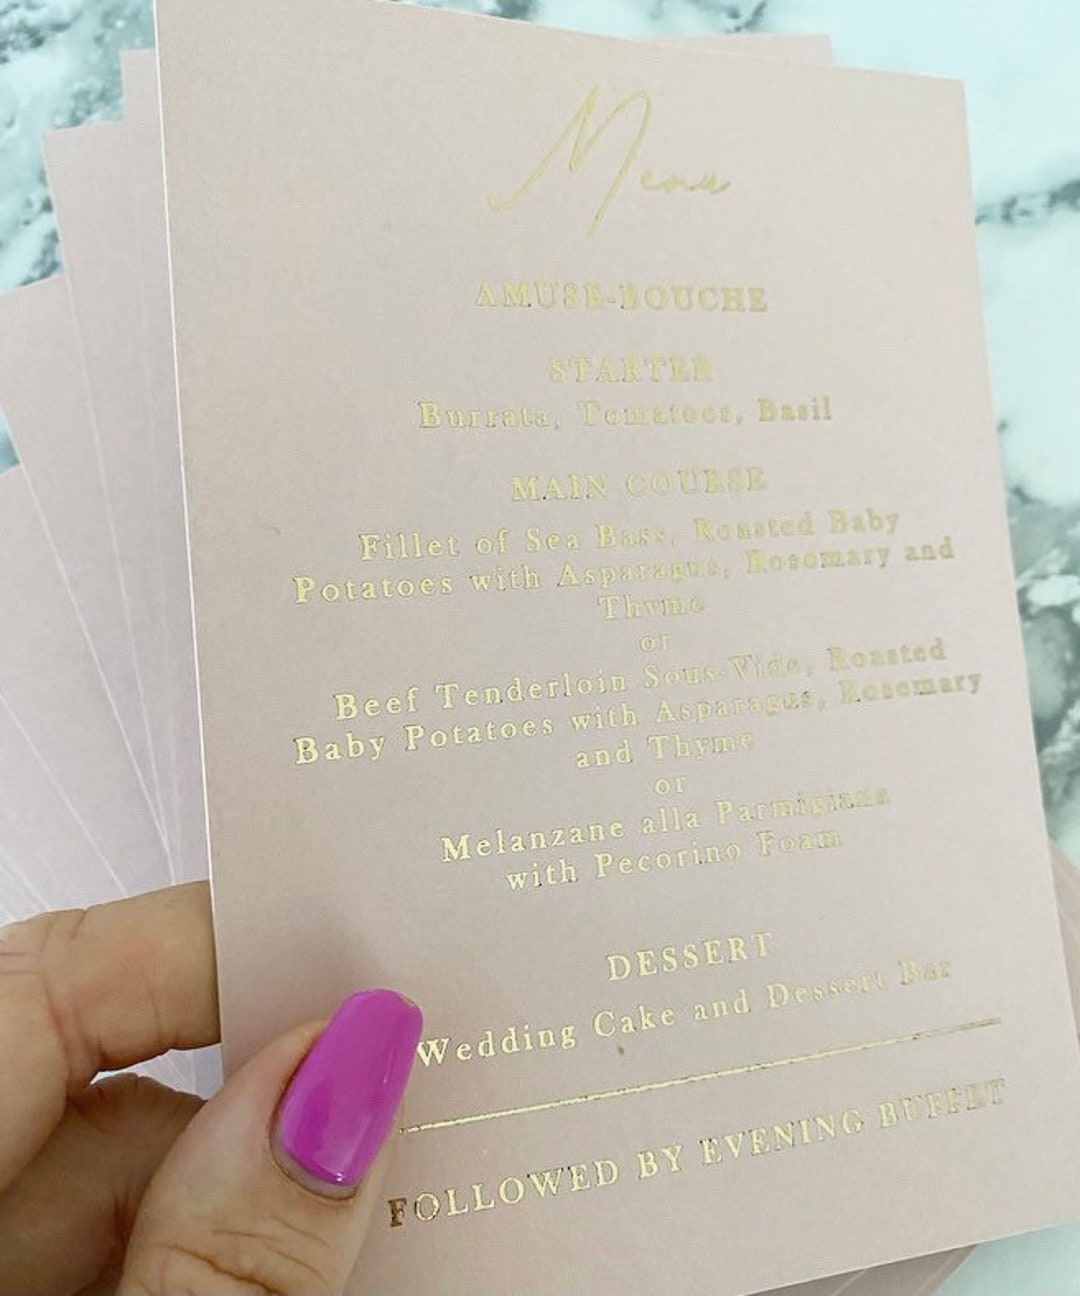 Menu
AMUSE-BOUCHE
STARTER
Burrata, Tomatoes, Basil
MAIN COURSE
Fillet of Sea Bass, Roasted Baby
Potatoes with Asparagus, Rosemary and
Thyme
or
Beef Tenderloin Sous-Vide, Roasted
Baby Potatoes with Asparagus, Rosemary
and Thyme
or
Melanzane alla Parmigiana
with Pecorino Foam
DESSERT
Wedding Cake and Dessert Bar
FOLLOWED BY EVENING BUFFET